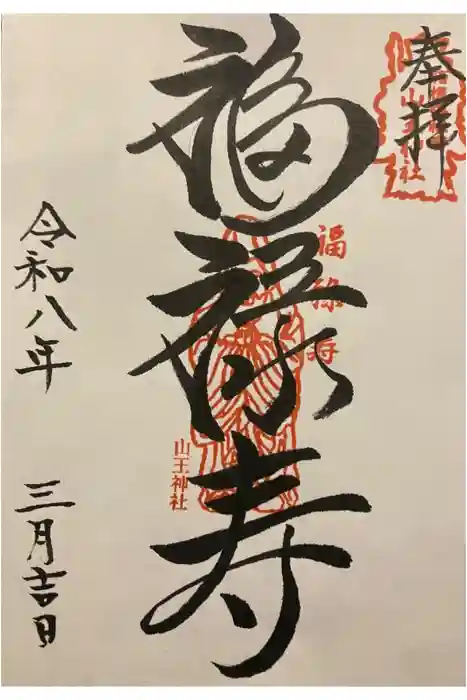 奉拝
福禄寿
福禄寿
山王神社
令和八年 三月吉日